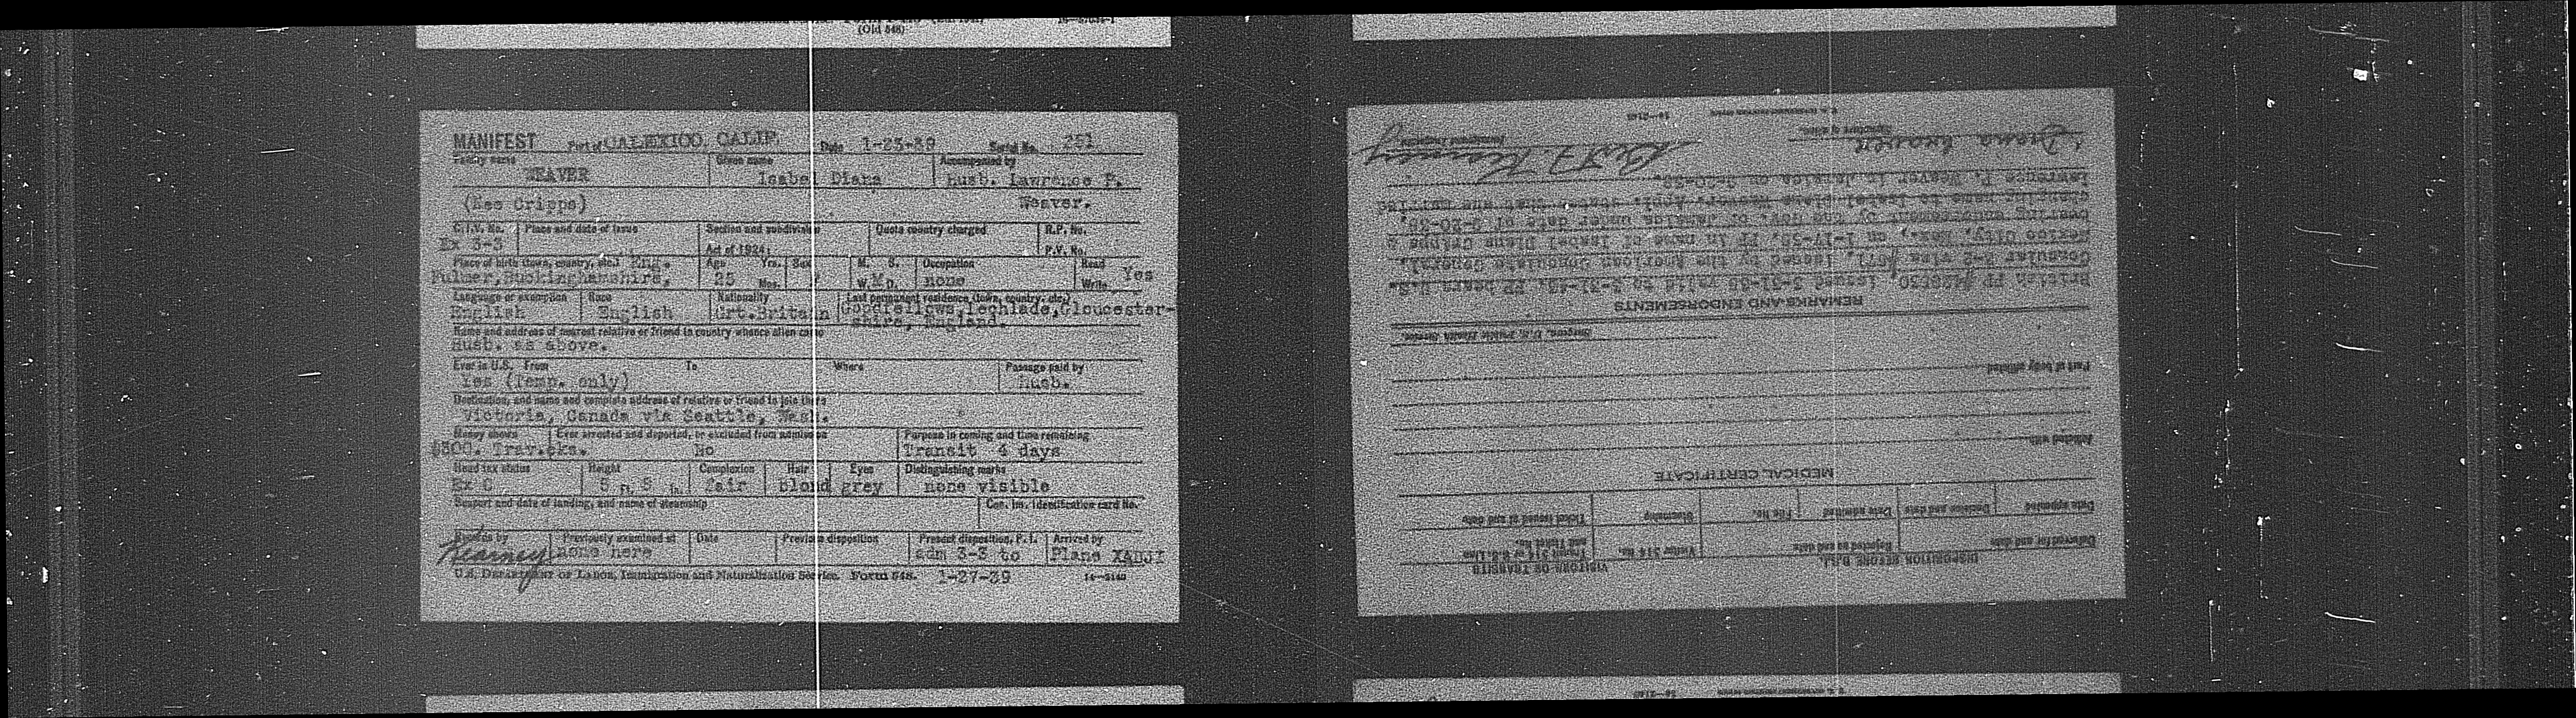 (Old 548)
MANIFEST Port of CALEXICO, CALIF. Date 1-23-39 Serial No. 251
Family name Given name Accompanied by
WEAVER Isabel Diana husb. Lawrence P.
(Nee Cripps) Weaver.
C.I.V. No. Place and date of issue Section and subdivision Quota country charged R.P. No.
Ex 3-3 Act of 1924: P.V. No.
Place of birth (town, country, etc.) Eng. Age Yrs. Sex M. S. Occupation Read Yes
Fulmer, Buckinghamshire, 25 Mos. W. M D. none Write
Language or exemption Race Nationality Last permanent residence (town, country, etc.)
English English Grt.Britain Goodfellows, Lechlade, Gloucester-
shire, England.
Name and address of nearest relative or friend in country whence alien came
Husb. as above.
Ever in U.S. From To Where Passage paid by
Yes (Temp. only) husb.
Destination, and name and complete address of relative or friend to join there
Victoria, Canada via Seattle, Wash.
Money shown Ever arrested and deported, or excluded from admission Purpose in coming and time remaining
$300. Trav.cks. No Transit 4 days
Head tax status Height Complexion Hair Eyes Distinguishing marks
Ex C 5 ft. 5 in. fair blond grey none visible
Seaport and date of landing, and name of steamship Can. Im. Identification card No.
Records by Previously examined at Date Previous disposition Present disposition, P.I. Arrived by
Kearney none here adm 3-3 to Plane
U.S. Department of Labor, Immigration and Naturalization Service. Form 548. 1-27-39 14—2140
DISPOSITION BEFORE B.S.I. VISITORS OR TRANSITS
Deferred for and date Rejected as and date Visitor $ No. Transit $ U.S. Line and Ticket No.
Date appealed Decision and date Date admitted File No. Steamship Ticket issued at and date
MEDICAL CERTIFICATE
Afflicted with
Part of body afflicted
Surgeon, U.S. Public Health Service.
REMARKS AND ENDORSEMENTS
British PP issued 3-31-38 valid to 3-31-43. PP bears U.S.
Consular 3-2 visa issued by the American Consulate General,
Mexico City, Mex., on 1-17-39. PP in name of Isabel Diana Cripps &
bearing endorsement by the Govt. of Jamaica under date of
changing name to Isabel Diana Weaver. Appl. states that was married
Lawrence P. Weaver in Jamaica on
Diana Weaver
Signature of alien. Immigrant Inspector